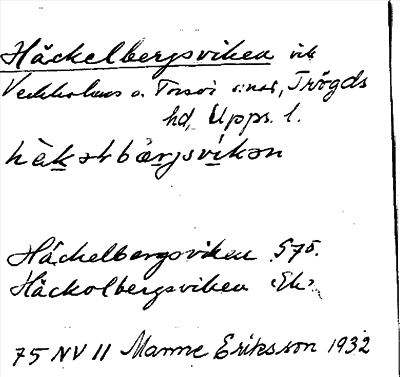 Häckelbergsviken vik
Veckholms o. Torsvi snar, Trögds
hd, Upps. l.
hàkəlbärjsvikən
Häckelbergsviken S75.
Häckolbergsviken Ek.
75 NV 11 Manne Eriksson 1932